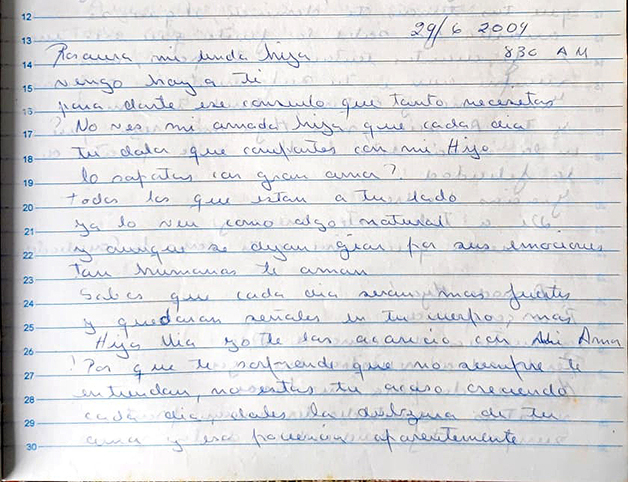 12
29/6 2004
13
Rosaura mi linda hija 830 AM
14
vengo hoy a ti
15
para darte ese consuelo que tanto necesitas
16
? No ves mi amada hija que cada dia
17
tu dolor que compartes con mi Hijo
18
lo soportas con gran amor?
19
todos los que estan a tu lado
20
ya lo ven como algo natural
21
y aunque se dejan guiar por sus emociones
22
tan humanas te aman
23
Sabes que cada dia seran mas fuertes
24
y quedaran señales en tu cuerpo, mas
25
Hija Mia yo te las acaricio con Mi Amor
26
! Por que te sorprende que no siempre te
27
entiendan, no estas tu acaso creciendo
28
cada dia, dales la dulzura de tu
29
amor y esa paciencia aparentemente
30